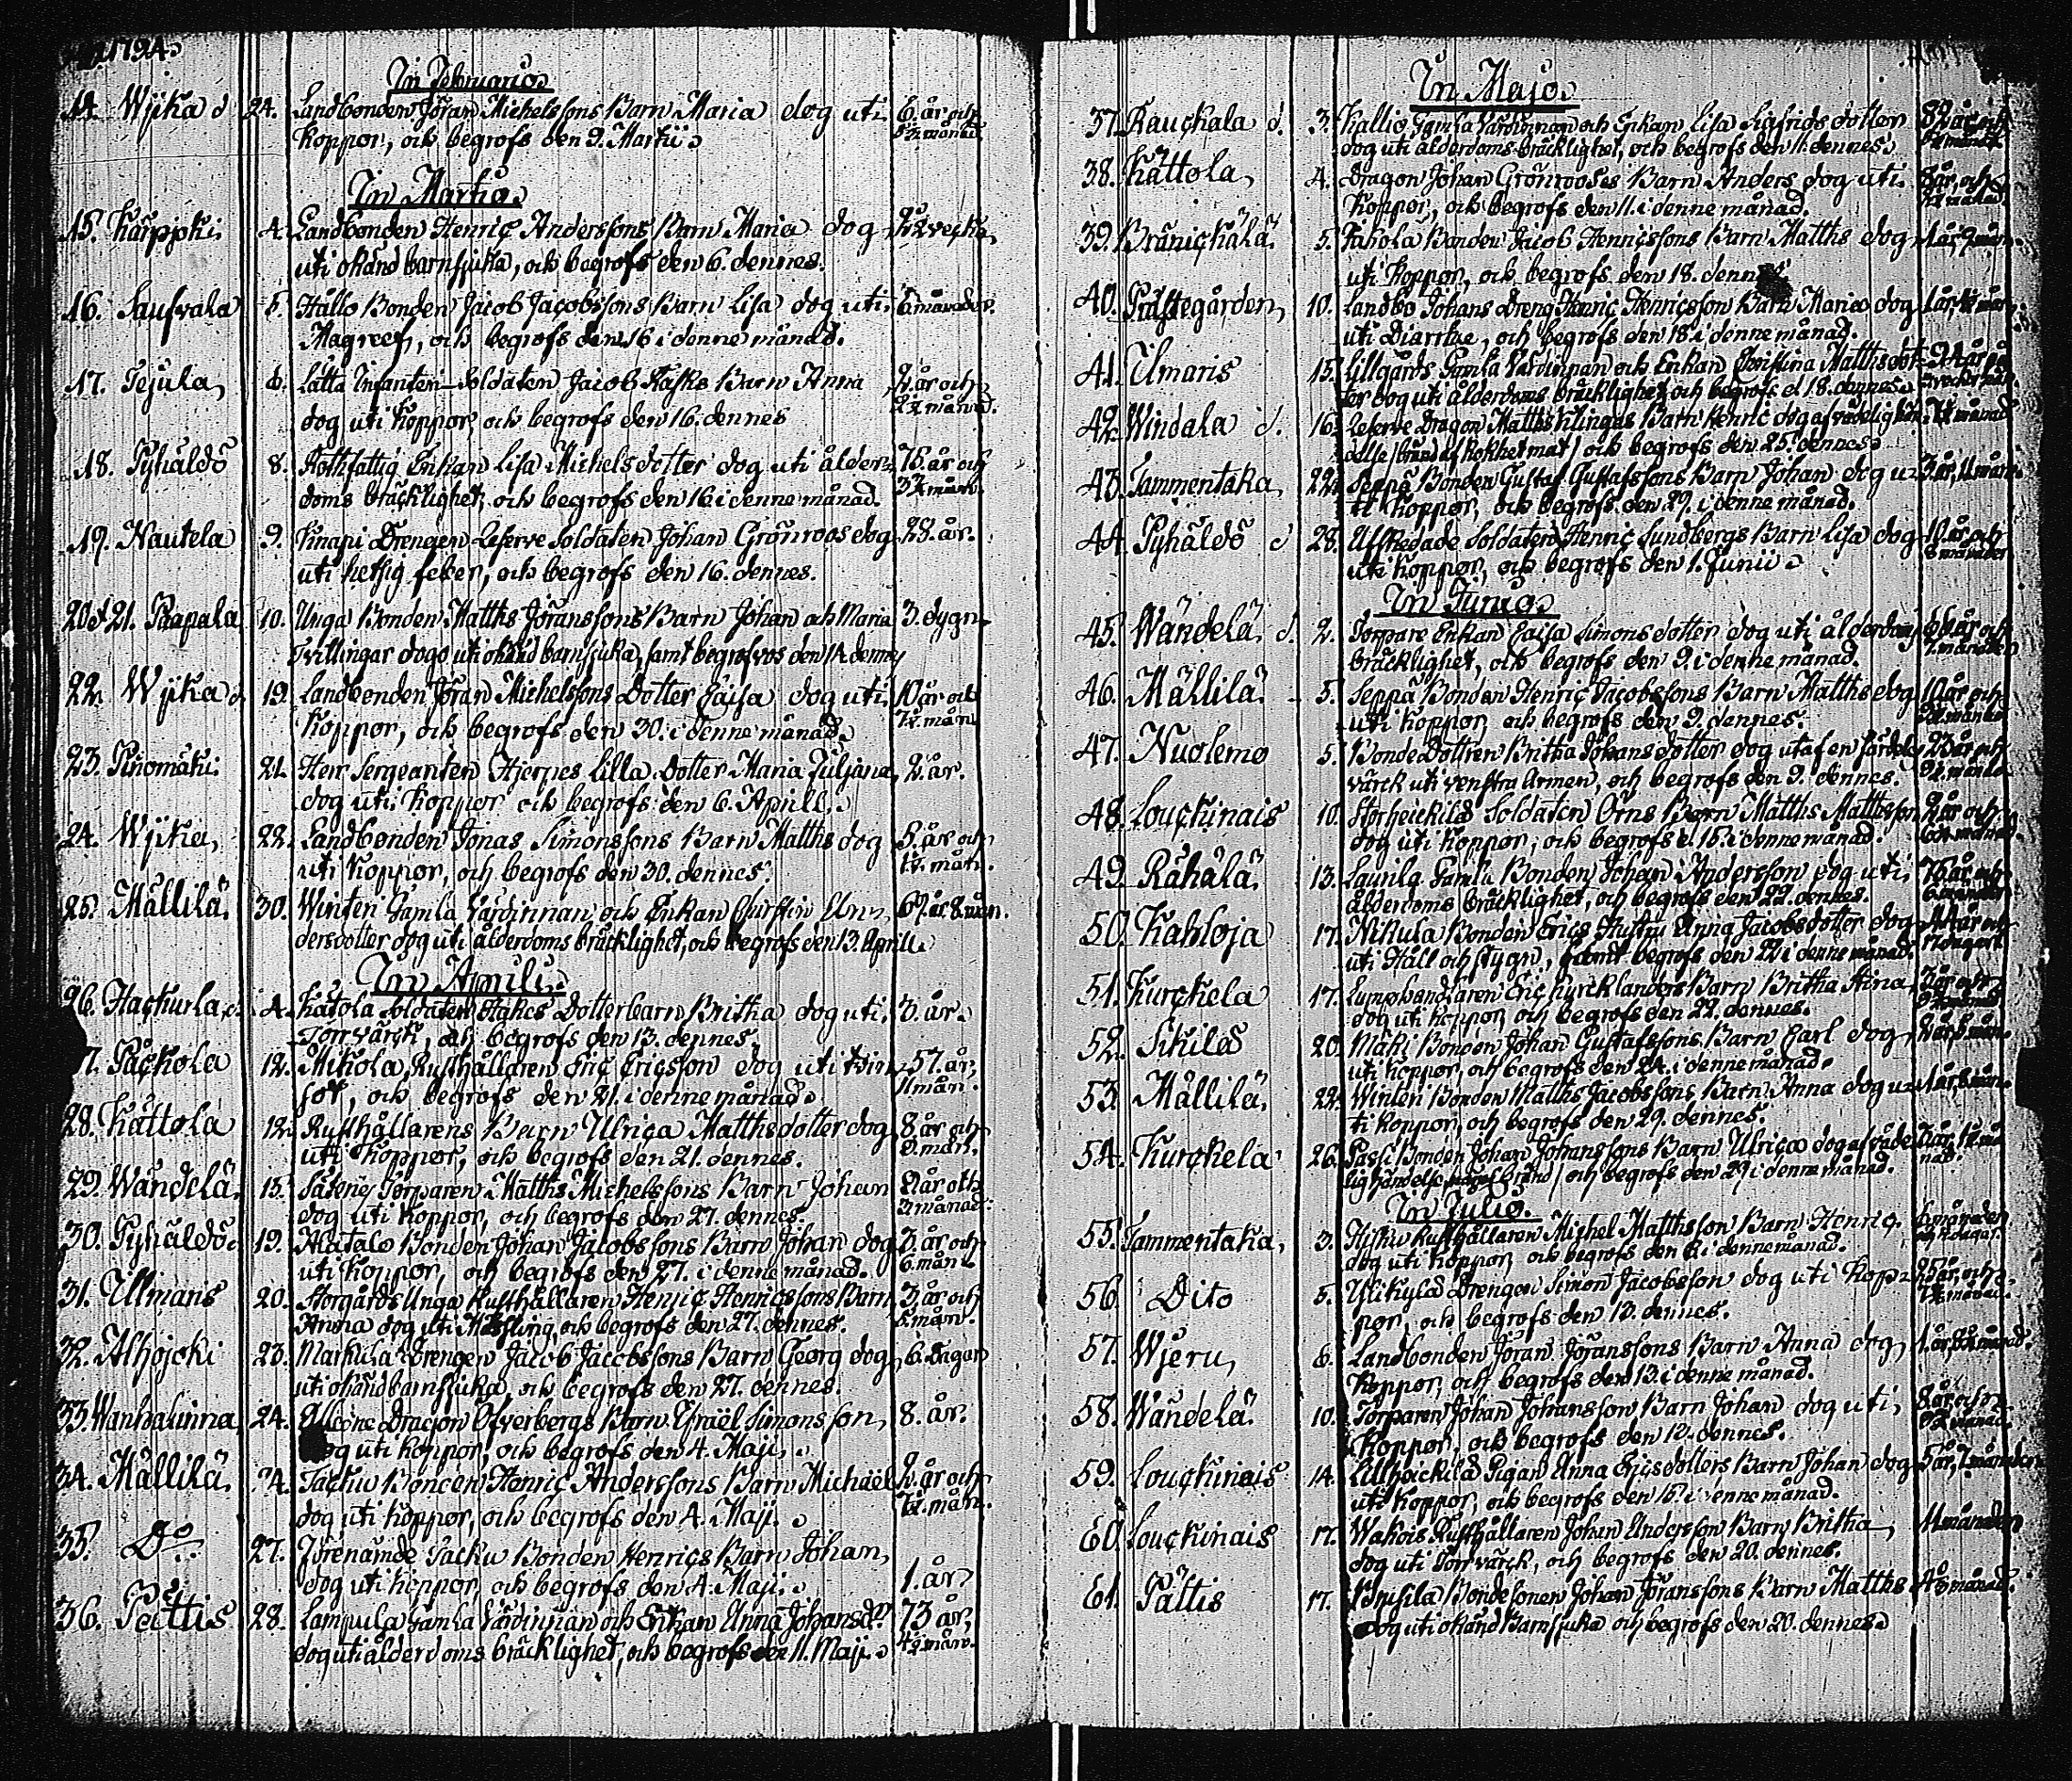 1794.
In Februario.
14. Wjika d 24. Landbonden Jöran Michelssons Barn Maria dog uti 6. år och
Koppor, och begrofs den 9. Martii. månad.
In Martio.
15. Karppki. 4. Landbonden Henric Anderssons Barn Maria dog 2½ vecka
uti okänd barnsjuka, och begrofs den 6. dennes.
16. Saufvala 5. Hållo Bonden Jacob Jacobssons Barn Lisa dog uti 6 månader.
Magreef, och begrofs den 16 i denne månad.
17. Tejula, 6. Lätta Infanteri-Soldaten Jacob Rasks Barn Anna 2. år och
dog uti Koppor, och begrofs den 16. dennes 2½ månad.
18. Pyhäldö 8. Rothfattig Enkan Lisa Michelsdotter dog uti ålder- 75. år och
doms bräcklighet, och begrofs den 16 i denne månad. 3½ mån.
19. Nautela 9. Knapi Drengen Reserve Soldaten Johan Grönroos dog 23. år.
uti hetsig feber, och begrofs den 16. dennes.
20 & 21. Paapala 10. Unga Bonden Matths Jöranssons Barn Johan och Maria 3. dygn.
Tvillingar dogo uti okänd barnsjuka, samt begrofvos den 14. dennes
22. Wjika d 19. Landbonden Jöran Michelssons Dotter Caisa dog uti 10 år och
Koppor, och begrofs den 30. i denne månad. 7½. mån
23. Pinomäki. 21. Herr Sergeanten Hjerpes lilla dotter Maria Juliana 2. år.
dog uti Koppor och begrofs den 6. Aprill.
24. Wjika, 22. Landbonden Jonas Simonssons Barn Matths dog 5. år och
uti Koppor, och begrofs den 30. dennes. 1½. mån.
25. Mällilä. 30. Winteri Gamla Värdinnan och Enkan Christin An- 67. år 8. mån.
dersdotter dog uti ålderdoms bräcklighet, och begrofs den 13. Aprill.
In Aprili.
26. Hachurla, d. 4. Katola Soldaten Hakes Dotterbarn Britha dog uti 3. år.
Torrvärck, och begrofs den 13. dennes.
7. Påckola 12. Mikola Rusthållaren Eric Ericsson dog uti tvin- 57. år,
sot, och begrofs den 21. i denne månad. 11 mån.
28. Kättola 12. Rusthållarens Barn Ulrica Matthsdotter dog 8. år och
uti Koppor, och begrofs den 21. dennes. 8. mån.
29. Wändelä. 15. Torparen Matths Michelssons Barn Johan 2 år och
dog uti Koppor, och begrofs den 27. dennes. 3. månad.
30. Pyhäldö d 19. Alatalo Bonden Johan Jacobssons Barn Johan dog 3. år och
uti Koppor, och begrofs den 27. i denne månad. 6. mån.
31. Illmaris 20. Storgårds Unga Rusthållaren Henric Henricssons Barn 3. år och
Anna dog uti Mässling, och begrofs den 27. dennes. 5. mån.
32. Alhojoki 23. Markula Drengen Jacob Jacobssons Barn Georg dog 6. dagar
uti okänd barnsjuka, och begrofs den 27. dennes.
33. Wanhalinna 24. Dragon Öfverbergs Barn Israël Simonsson 8. år.
dog uti Koppor, och begrofs den 4. Maji.
34. Mällilä. 24. Tacku Bonden Henric Anderssons Barn Michaël 2. år och
dog uti Koppor, och begrofs den 4. Maji. 7½. mån.
35. Do. 27. Förenämde Tacku Bonden Henrics Barn Johan,
dog uti Koppor, och begrofs den 4. Maji. 1. år
36. Pättis 28. Lampula Gamla Värdinnan och Enkan Anna Johansdr. 73 år,
dog uti ålderdoms bräcklighet, och begrofs den 11. Maji. 4½ mån.
In Majo.
37. Rauckala d. 3. Kallio Gamla Värdinnan och Enkan Lisa Sigfridsdotter 82 år och
dog uti ålderdoms bräcklighet, och begrofs den 11. dennes.
38. Kättola, 4. Dragon Johan Grönrooses Barn Anders dog uti 8 år, och
Koppor, och begrofs den 11. i denne månad. månad.
39. Bränickälä. 5. Jakola Bonden Jacob Henricssons Barn Matths dog
uti Koppor, och begrofs den 18. dennes
40. Prästegården, 10. Landbo Johans Dreng Henric Henricsson Barn Maria dog
uti Diarrhe, och begrofs den 18. i denne månad.
41. Ilmaris 15. Lillgårds Gamla Värdinnan och Enkan Christina Matthsdot-
ter dog uti ålderdoms bräcklighet, och begrofs d. 18. dennes.
42. Windala d. 16. Reserve Dragon Matths Klingas Barn Henric dog af vådelig hän-
delse (bränd af kokhet mat) och begrofs den 25. dennes.
43. Tammentaka, 22. Seppä Bonden Gustaf Gustafssons Barn Johan dog u- 3. år, 11. mån.
ti Koppor, och begrofs den 29. i denne månad.
44. Pyhäldö d 28. Afskedade Soldaten Henric Sundbergs Barn Lisa dog 10. år och
uti Koppor, och begrofs den 1. Junii. 8 månader
In Junio.
45. Wändelä d. 2. Torpare Enkan Caisa Simonsdotter dog uti ålderdoms år och
bräcklighet, och begrofs den 9. i denne månad. månader
46. Mällilä. 5. Seppä Bonden Henric Jacobssons Barn Matths dog 10. år och
uti Koppor, och begrofs den 9. dennes.
47. Nuolemo 5. Bonde Dottren Britha Johansdotter dog utaf en särdeles 23 år och
värck uti venstra Armen, och begrofs den 9. dennes.
48. Louckinais 10. Storheickilä Soldaten Örns Barn Matths Matthsson 2 år och
dog uti Koppor, och begrofs d. 15. i denne månad.
49. Rähälä. 13. Launila Gamla Bonden Johan Andersson dog uti 75 år och
ålderdoms bräcklighet, och begrofs den 22. dennes.
50. Kahloja 17. Nikula Bonden Erics Hustru Anna Jacobsdotter dog 44 år och
uti Håll och stygn, samt begrofs den 22 i denne månad.
51. Kurckela 17. Lumphandlaren Eric Kurcklanders Barn Britha Stina 3 år och
dog uti Koppor, och begrofs den 22. dennes.
52. Skilä 20. Mäki Bonden Johan Gustafssons Barn Carl dog
uti Koppor, och begrofs den 24. i denne månad.
53. Mällilä. 22. Winteri Bonden Matths Jacobssons Barn Anna dog u-
ti Koppor, och begrofs den 29. dennes.
54. Kurckela 26. Passi Bonden Johan Johanssons Barn Ulrica dog af våde-
lig händelse och begrofs den 29 i denne månad.
In Julio.
55. Tammentaka, 3. Rusthållaren Michel Matthsson Barn Henric månader
dog uti Koppor, och begrofs den 6. i denne månad.
56. Dito 5. Ylikylä Drengen Simon Jacobsson dog uti Kop- 25 år, och
por, och begrofs den 12. dennes. månad.
57. Wjeru, 6. Landbonden Jöran Jöranssons Barn Anna dog
Koppor, och begrofs den 13. i denne månad.
58. Wändelä. 10. Torparen Johan Johansson Barn Johan dog uti 8 år, och
Koppor, och begrofs den 12. dennes. månad.
59. Louckinais 14. Lillheickilä Pigan Anna Ericsdotters Barn Johan dog 5 år, 7. månader
uti Koppor, och begrofs den 16. i denne månad.
60. Louckinais 17. Wakois Rusthållaren Johan Andersson Barn Britha 11 månader
dog uti Torrvärck, och begrofs den 20. dennes.
61. Pättis 17. Brusila Bondesonen Johan Jöranssons Barn Matths 4½ månad.
dog uti okänd Barnsjuka och begrofs den 20. dennes